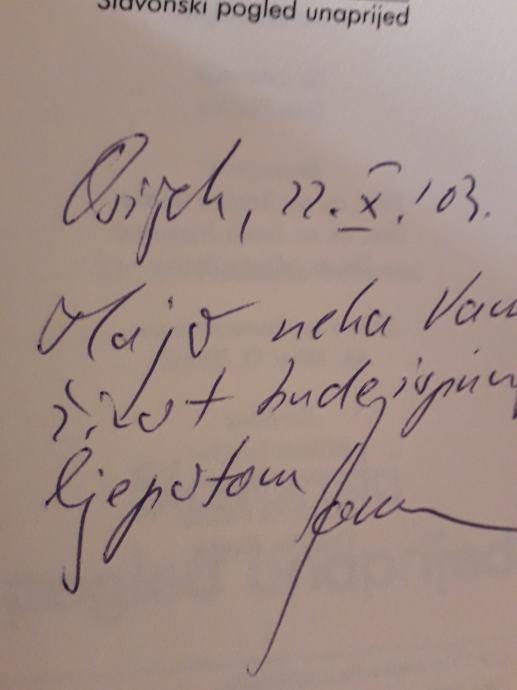 Slavonski pogled unaprijed
Osijek, 22. X. '03.
neka Vam
život bude ispunj
ljepotom